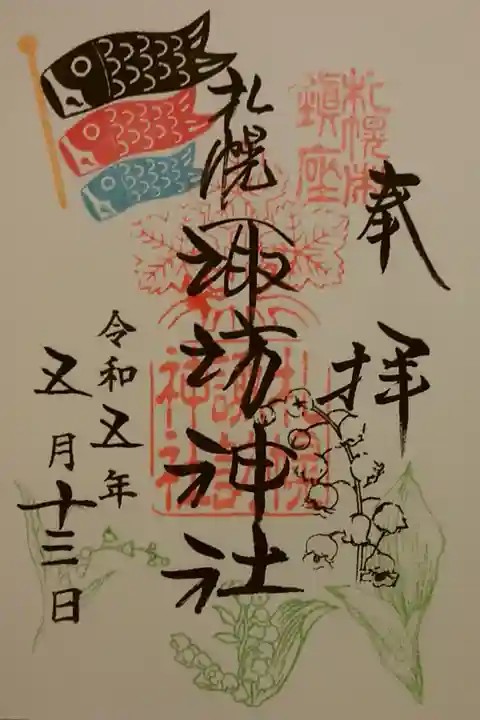 奉拝
札幌鎮座
札幌
諏訪神社
札幌諏訪神社
令和五年
五月十三日